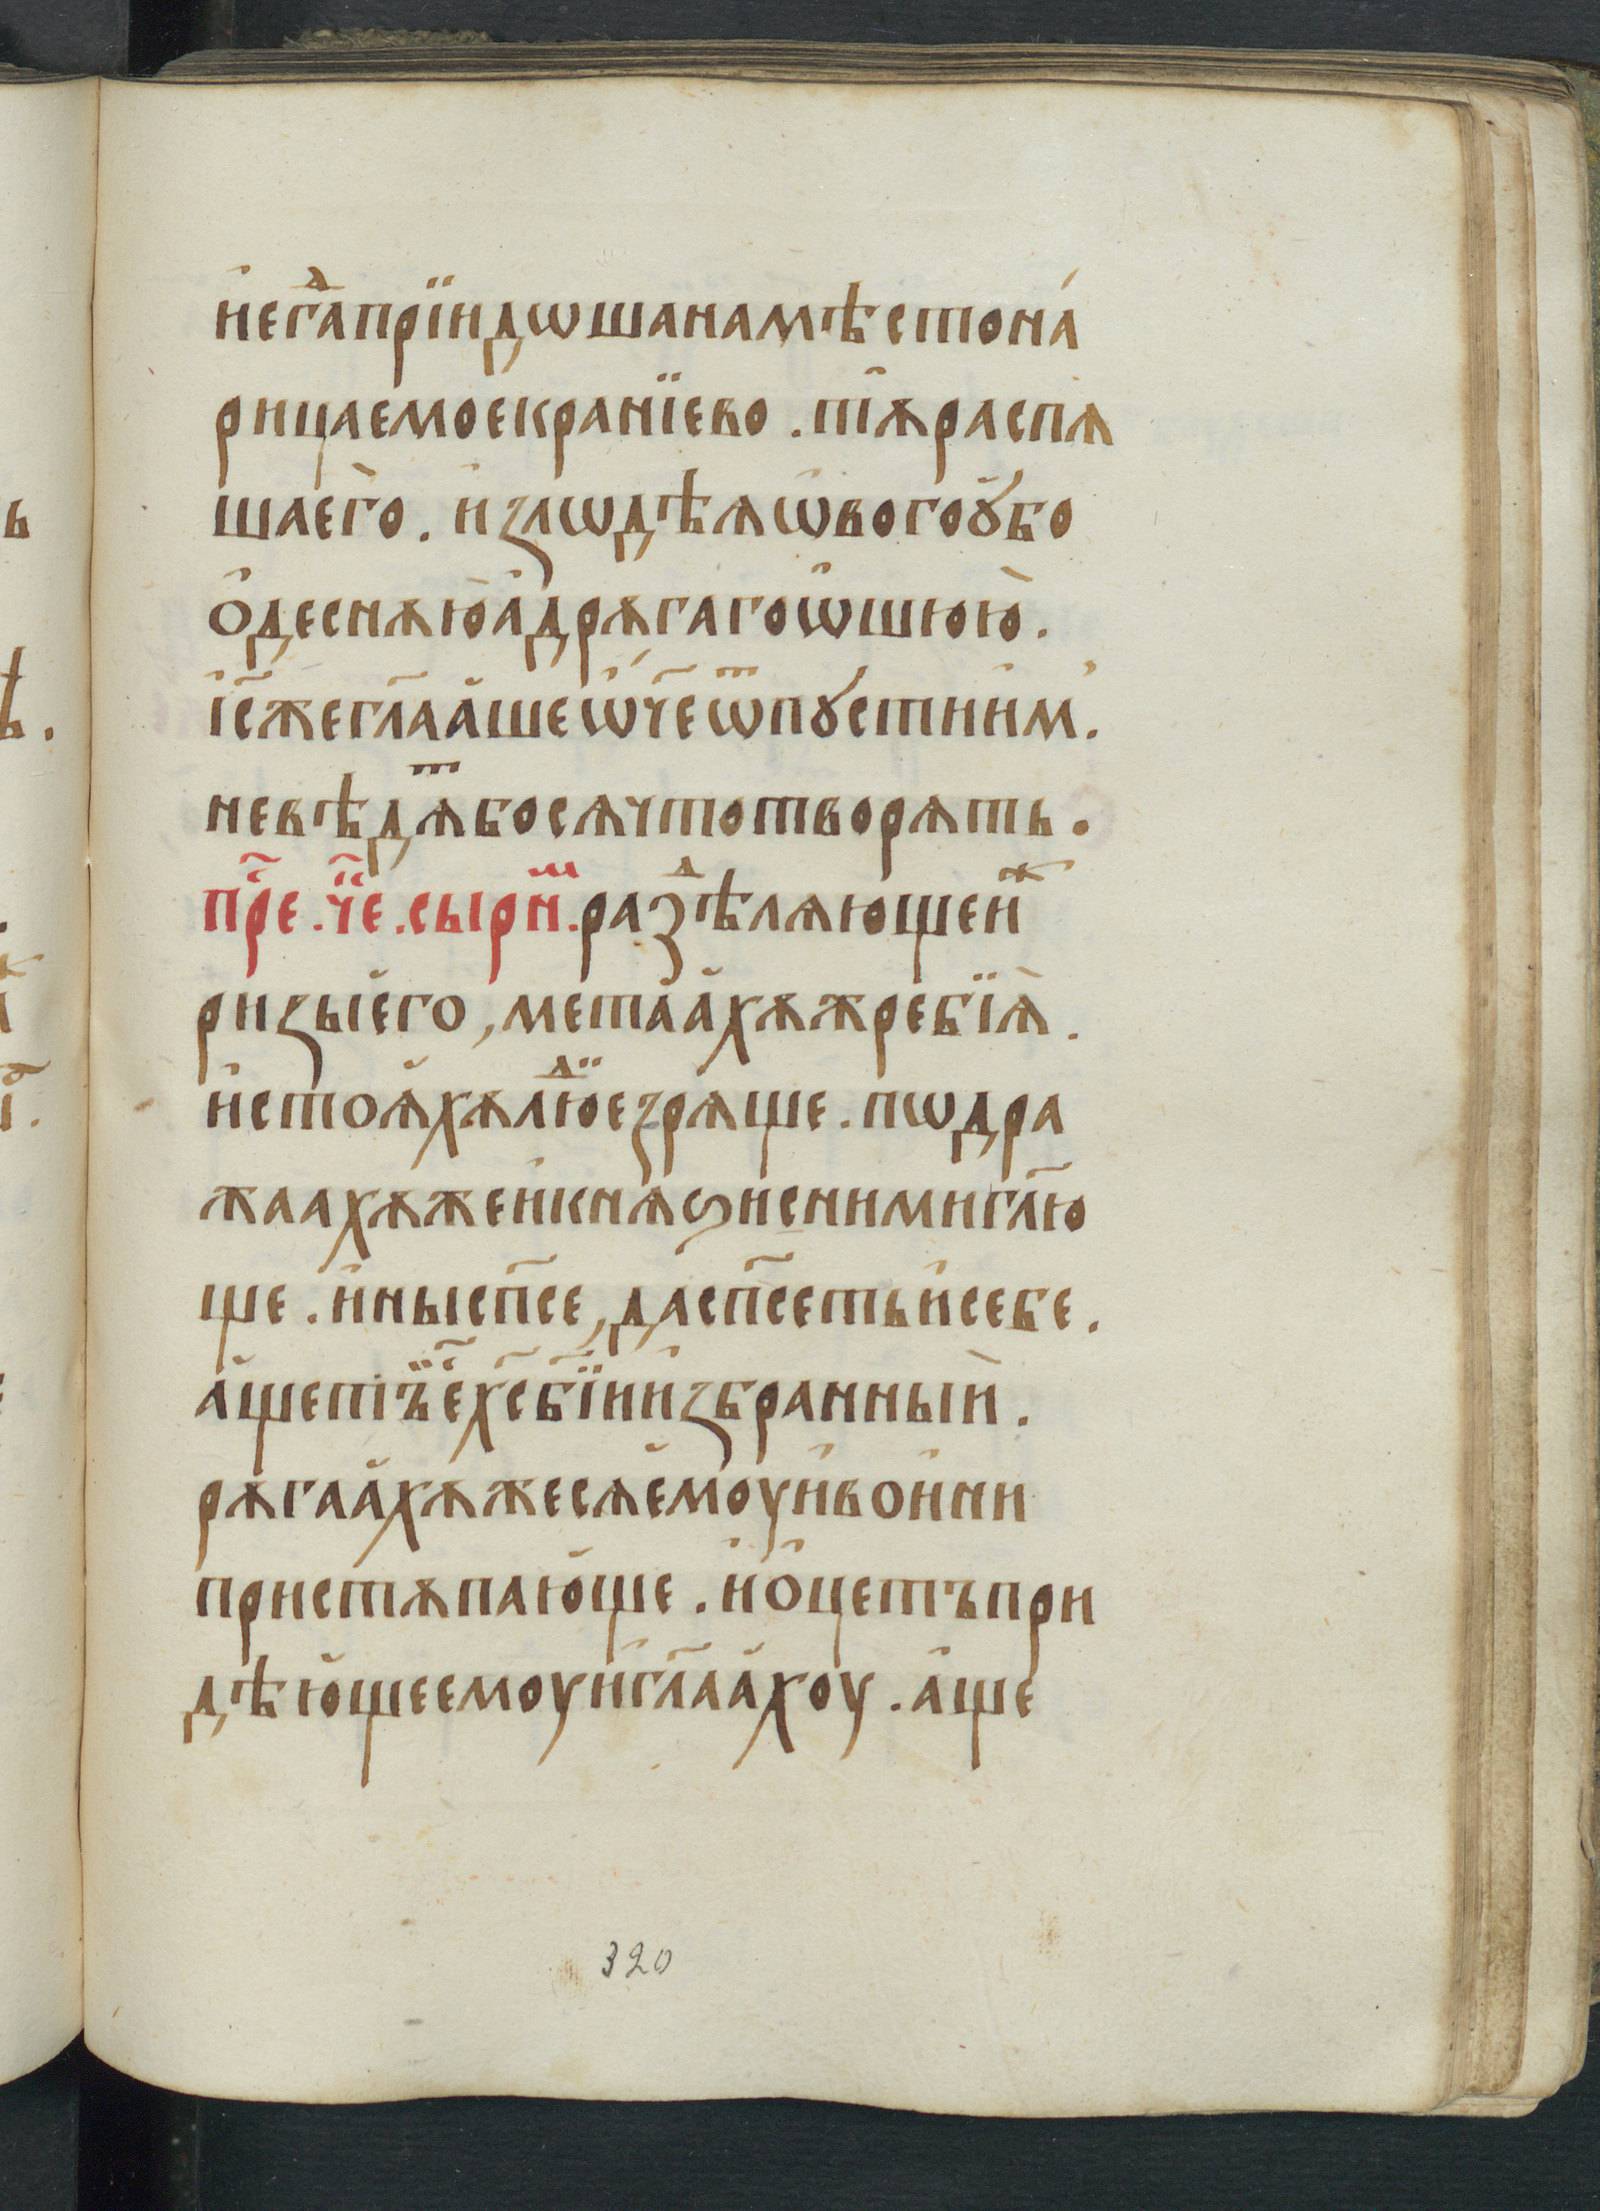 и҆ е҆гаⷣ прїидѡша на мѣсто на́
рицаемое кранїево . тꙋ҆ распѧ
ша е҆го̀ . и҆ ꙁлѡдѣѧ ѡ҆вого оу҆бо
о҆деснѫю̀ а҆ дрѫгаго ѡ҆шююю̀ .
і҆с҃ же гл҃аа҆ше ѡ҆́ч҃е ѿпꙋсти и҆м̾ .
не вѣдѧⷮ бо сѧ что творѧть .
пр҃е . ч҃е . сырнⷨ . раꙁⷣѣлѧюще иⷤ
риꙁы е҆го , метаа҆хѫ жребїѧ̀ .
и҆ стоѧ҆хѫ люⷣїе ꙁрѧще . пѡдра
жаахѫ же и҆ кнѧѕи с ними гл҃ю
ще . и҆ны сп҃се , да сп҃сеть и҆ себе .
а҆ще тъи е҃ х҃с б҃їи иꙁбранныи҆ .
рѫгаа҆хѫ жесѧ е҆моу и҆ вои҆ни
пристѫпаю҆ще . и҆ о҆цетъ при
дѣю҆ще емоу и҆ гл҃аа҆хоу . а҆ще
320